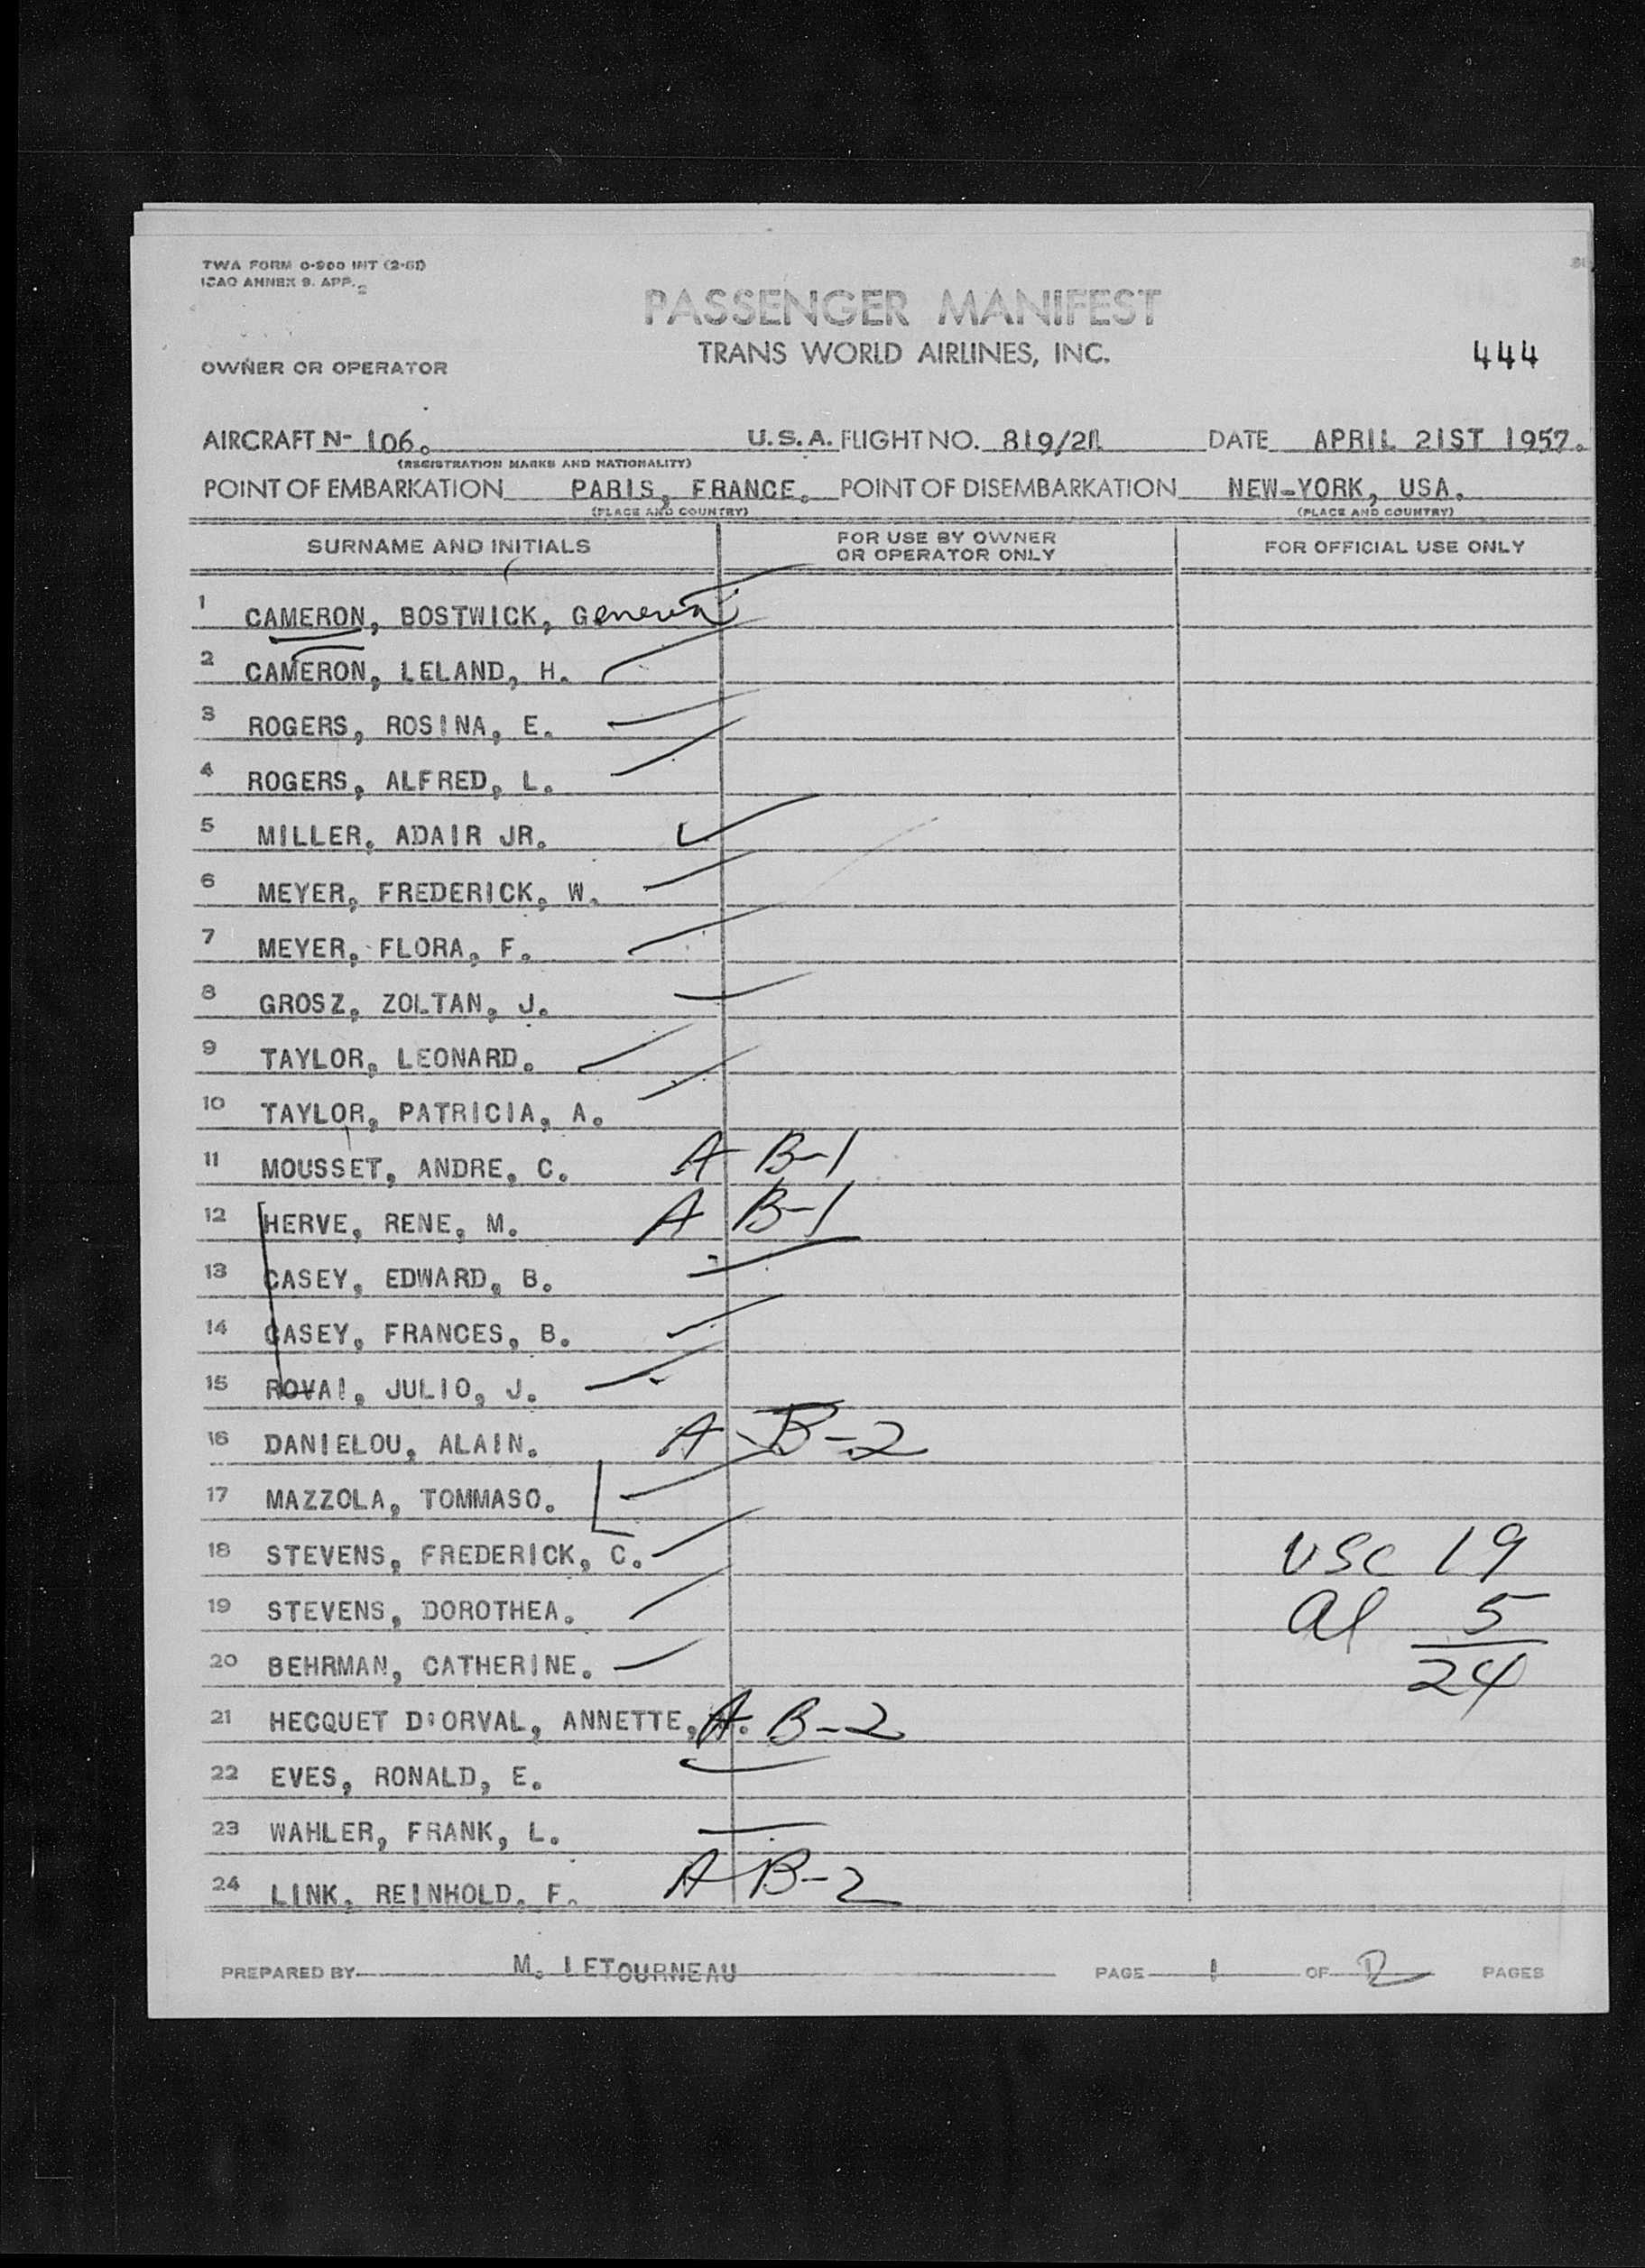 TWA FORM 0-900 INT (2-51)
ICAO ANNEX 9. APP. 2
PASSENGER MANIFEST
TRANS WORLD AIRLINES, INC.
444
OWNER OR OPERATOR
AIRCRAFT N- 106. U.S.A. FLIGHT NO. 819/21 DATE APRIL 21ST 1957.
(REGISTRATION MARKS AND NATIONALITY)
POINT OF EMBARKATION PARIS, FRANCE. POINT OF DISEMBARKATION NEW-YORK, USA.
(PLACE AND COUNTRY) (PLACE AND COUNTRY)
SURNAME AND INITIALS FOR USE BY OWNER OR OPERATOR ONLY FOR OFFICIAL USE ONLY
1 CAMERON, BOSTWICK, Geneva
2 CAMERON, LELAND, H.
3 ROGERS, ROSINA, E.
4 ROGERS, ALFRED, L.
5 MILLER, ADAIR JR.
6 MEYER, FREDERICK, W.
7 MEYER, FLORA, F.
8 GROSZ, ZOLTAN, J.
9 TAYLOR, LEONARD.
10 TAYLOR, PATRICIA, A.
11 MOUSSET, ANDRE, C. A B-1
12 HERVE, RENE, M. A B-1
13 CASEY, EDWARD, B.
14 CASEY, FRANCES, B.
15 ROVAI, JULIO, J.
16 DANIELOU, ALAIN. A B-2
17 MAZZOLA, TOMMASO.
18 STEVENS, FREDERICK, C. USC 19
19 STEVENS, DOROTHEA. Al 5
20 BEHRMAN, CATHERINE. 24
21 HECQUET D'ORVAL, ANNETTE, A. B-2
22 EVES, RONALD, E.
23 WAHLER, FRANK, L.
24 LINK, REINHOLD, F. A B-2
PREPARED BY M. LETOURNEAU PAGE 1 OF 2 PAGES